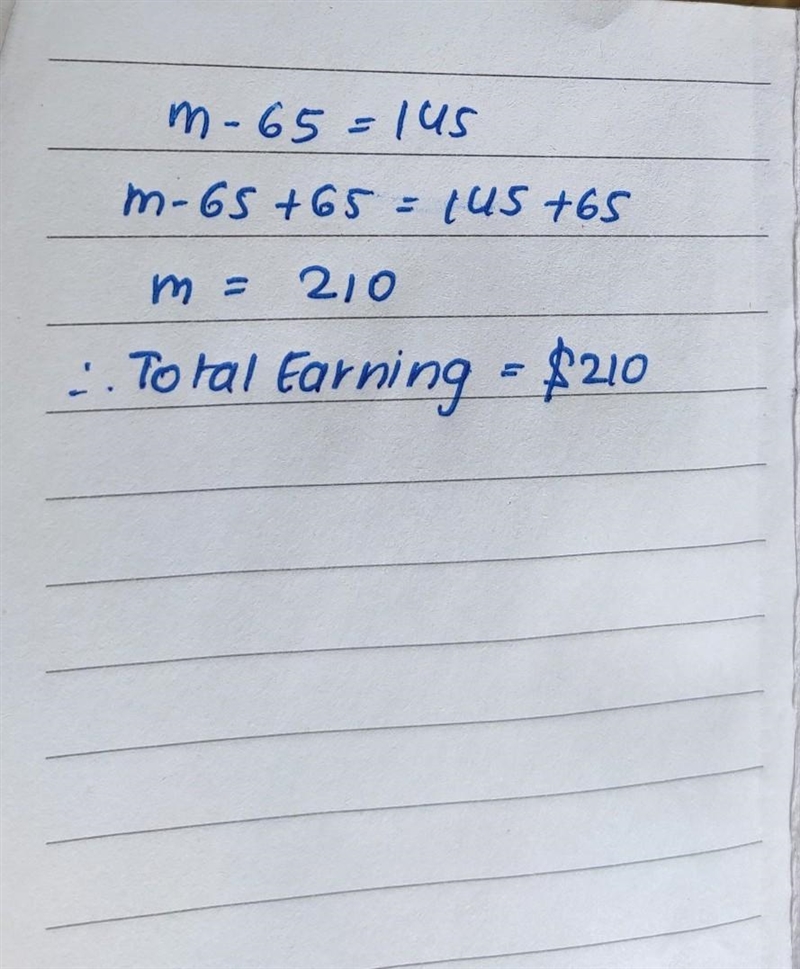 m - 65 = 145
m - 65 + 65 = 145 + 65
m = 210
∴ Total Earning = $210